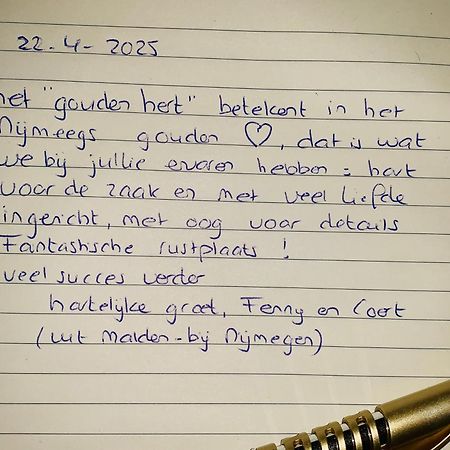 22-4-2025
het "gouden hert" betekent in het
Nijmeegs gouden ♡, dat is wat
we bij jullie ervaren hebben = hart
voor de zaak en met veel liefde
ingericht, met oog voor details
Fantastische rustplaats !
veel succes verder
hartelijke groet, Fenny en Coert
(uit Malden - bij Nijmegen)